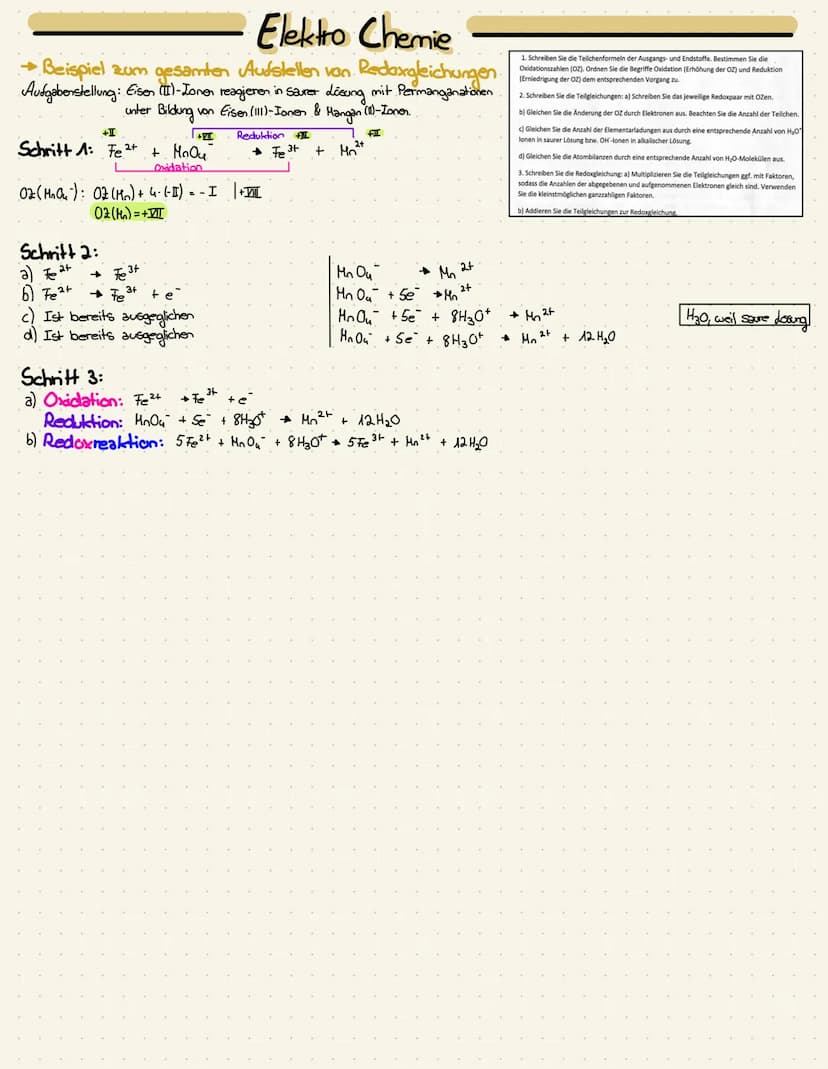 Elektro Chemie
→ Beispiel zum gesamten Aufstellen von Redoxgleichungen
Aufgabenstellung: Eisen (II)-Ionen reagieren in saurer Lösung mit Permanganationen
unter Bildung von Eisen (III)-Ionen & Mangan (II)-Ionen.
1. Schreiben Sie die Teilchenformeln der Ausgangs- und Endstoffe. Bestimmen Sie die
Oxidationszahlen (OZ). Ordnen Sie die Begriffe Oxidation (Erhöhung der OZ) und Reduktion
(Erniedrigung der OZ) dem entsprechenden Vorgang zu.
2. Schreiben Sie die Teilgleichungen: a) Schreiben Sie das jeweilige Redoxpaar mit OZen.
b) Gleichen Sie die Änderung der OZ durch Elektronen aus. Beachten Sie die Anzahl der Teilchen.
c) Gleichen Sie die Anzahl der Elementarladungen aus durch eine entsprechende Anzahl von H₃O⁺
Ionen in saurer Lösung bzw. OH⁻-Ionen in alkalischer Lösung.
d) Gleichen Sie die Atombilanzen durch eine entsprechende Anzahl von H₂O-Molekülen aus.
3. Schreiben Sie die Redoxgleichung: a) Multiplizieren Sie die Teilgleichungen ggf. mit Faktoren,
sodass die Anzahlen der abgegebenen und aufgenommenen Elektronen gleich sind. Verwenden
Sie die kleinstmöglichen ganzzahligen Faktoren.
b) Addieren Sie die Teilgleichungen zur Redoxgleichung.
+II +VII Reduktion +III +II
Schritt 1: Fe²⁺ + MnO₄⁻ → Fe³⁺ + Mn²⁺
Oxidation
OZ(MnO₄⁻): OZ(Mn) + 4·(-II) = -I |+VIII
OZ(Mn) = +VII
Schritt 2:
a) Fe²⁺ → Fe³⁺ | MnO₄⁻ → Mn²⁺
b) Fe²⁺ → Fe³⁺ + e⁻ | MnO₄⁻ + 5e⁻ → Mn²⁺
c) Ist bereits ausgeglichen | MnO₄⁻ + 5e⁻ + 8H₃O⁺ → Mn²⁺
d) Ist bereits ausgeglichen | MnO₄⁻ + 5e⁻ + 8H₃O⁺ → Mn²⁺ + 12H₂O
H₃O, weil saure Lösung
Schritt 3:
a) Oxidation: Fe²⁺ → Fe³⁺ + e⁻
Reduktion: MnO₄⁻ + 5e⁻ + 8H₃O⁺ → Mn²⁺ + 12H₂O
b) Redoxreaktion: 5Fe²⁺ + MnO₄⁻ + 8H₃O⁺ → 5Fe³⁺ + Mn²⁺ + 12H₂O